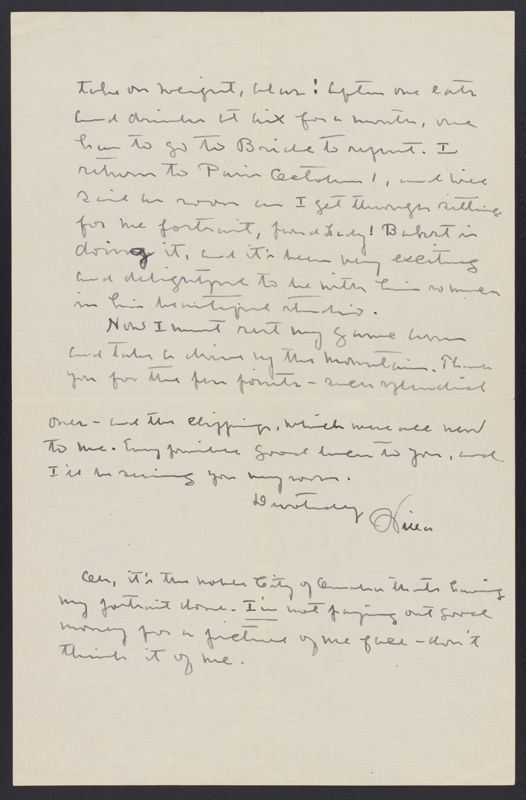 take on weight, alas! After one eats
and drinks at Aix for a month, one
has to go to Bride to repent. I
return to Paris October 1, and will
sail as soon as I get through sitting
for me portrait, fond lady!
doing it, and it's been very exciting
and delightful to be with him so much
in his beautiful studio.
Now I must rest my game arm
and take a drive up the mountain. Thank
you for the pen points – such splendid
ones – and the clippings, which were all new
to me. Every possible good luck to you, and
I'll be seeing you very soon.
Devotedly
Oh, it's the noble City of Omaha that's having
my portrait done. I'm not paying out good
money for a picture of me face – don't
think it of me.